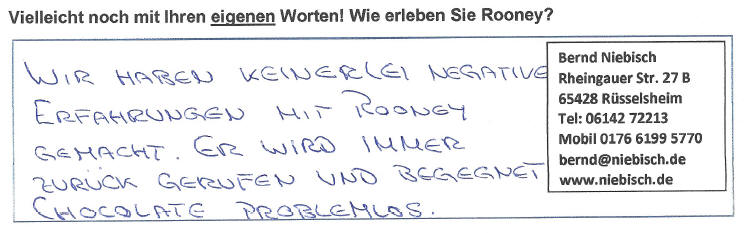 Vielleicht noch mit Ihren eigenen Worten! Wie erleben Sie Rooney?
WIR HABEN KEINERLEI NEGATIVE
ERFAHRUNGEN MIT ROONEY
GEMACHT. ER WIRD IMMER
ZURÜCK GERUFEN UND BEGEGNET
CHOCOLATE PROBLEMLOS.
Bernd Niebisch
Rheingauer Str. 27 B
65428 Rüsselsheim
Tel: 06142 72213
Mobil 0176 6199 5770
bernd@niebisch.de
www.niebisch.de